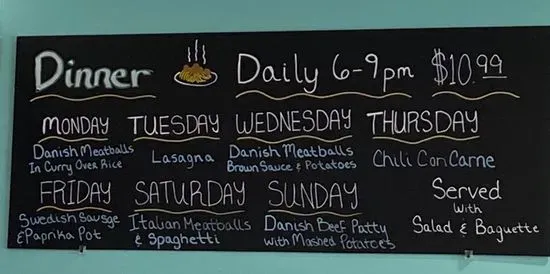 Dinner Daily 6-9pm $10.99
MONDAY TUESDAY WEDNESDAY THURSDAY
Danish Meatballs
In Curry Over Rice
Lasagna
Danish Meatballs
Brown Sauce & Potatoes
Chili Con Carne
FRIDAY SATURDAY SUNDAY
Swedish Sausge
& Paprika Pot
Italian Meatballs
& Spaghetti
Danish Beef Patty
With Mashed Potatoes
Served
With
Salad & Baguette